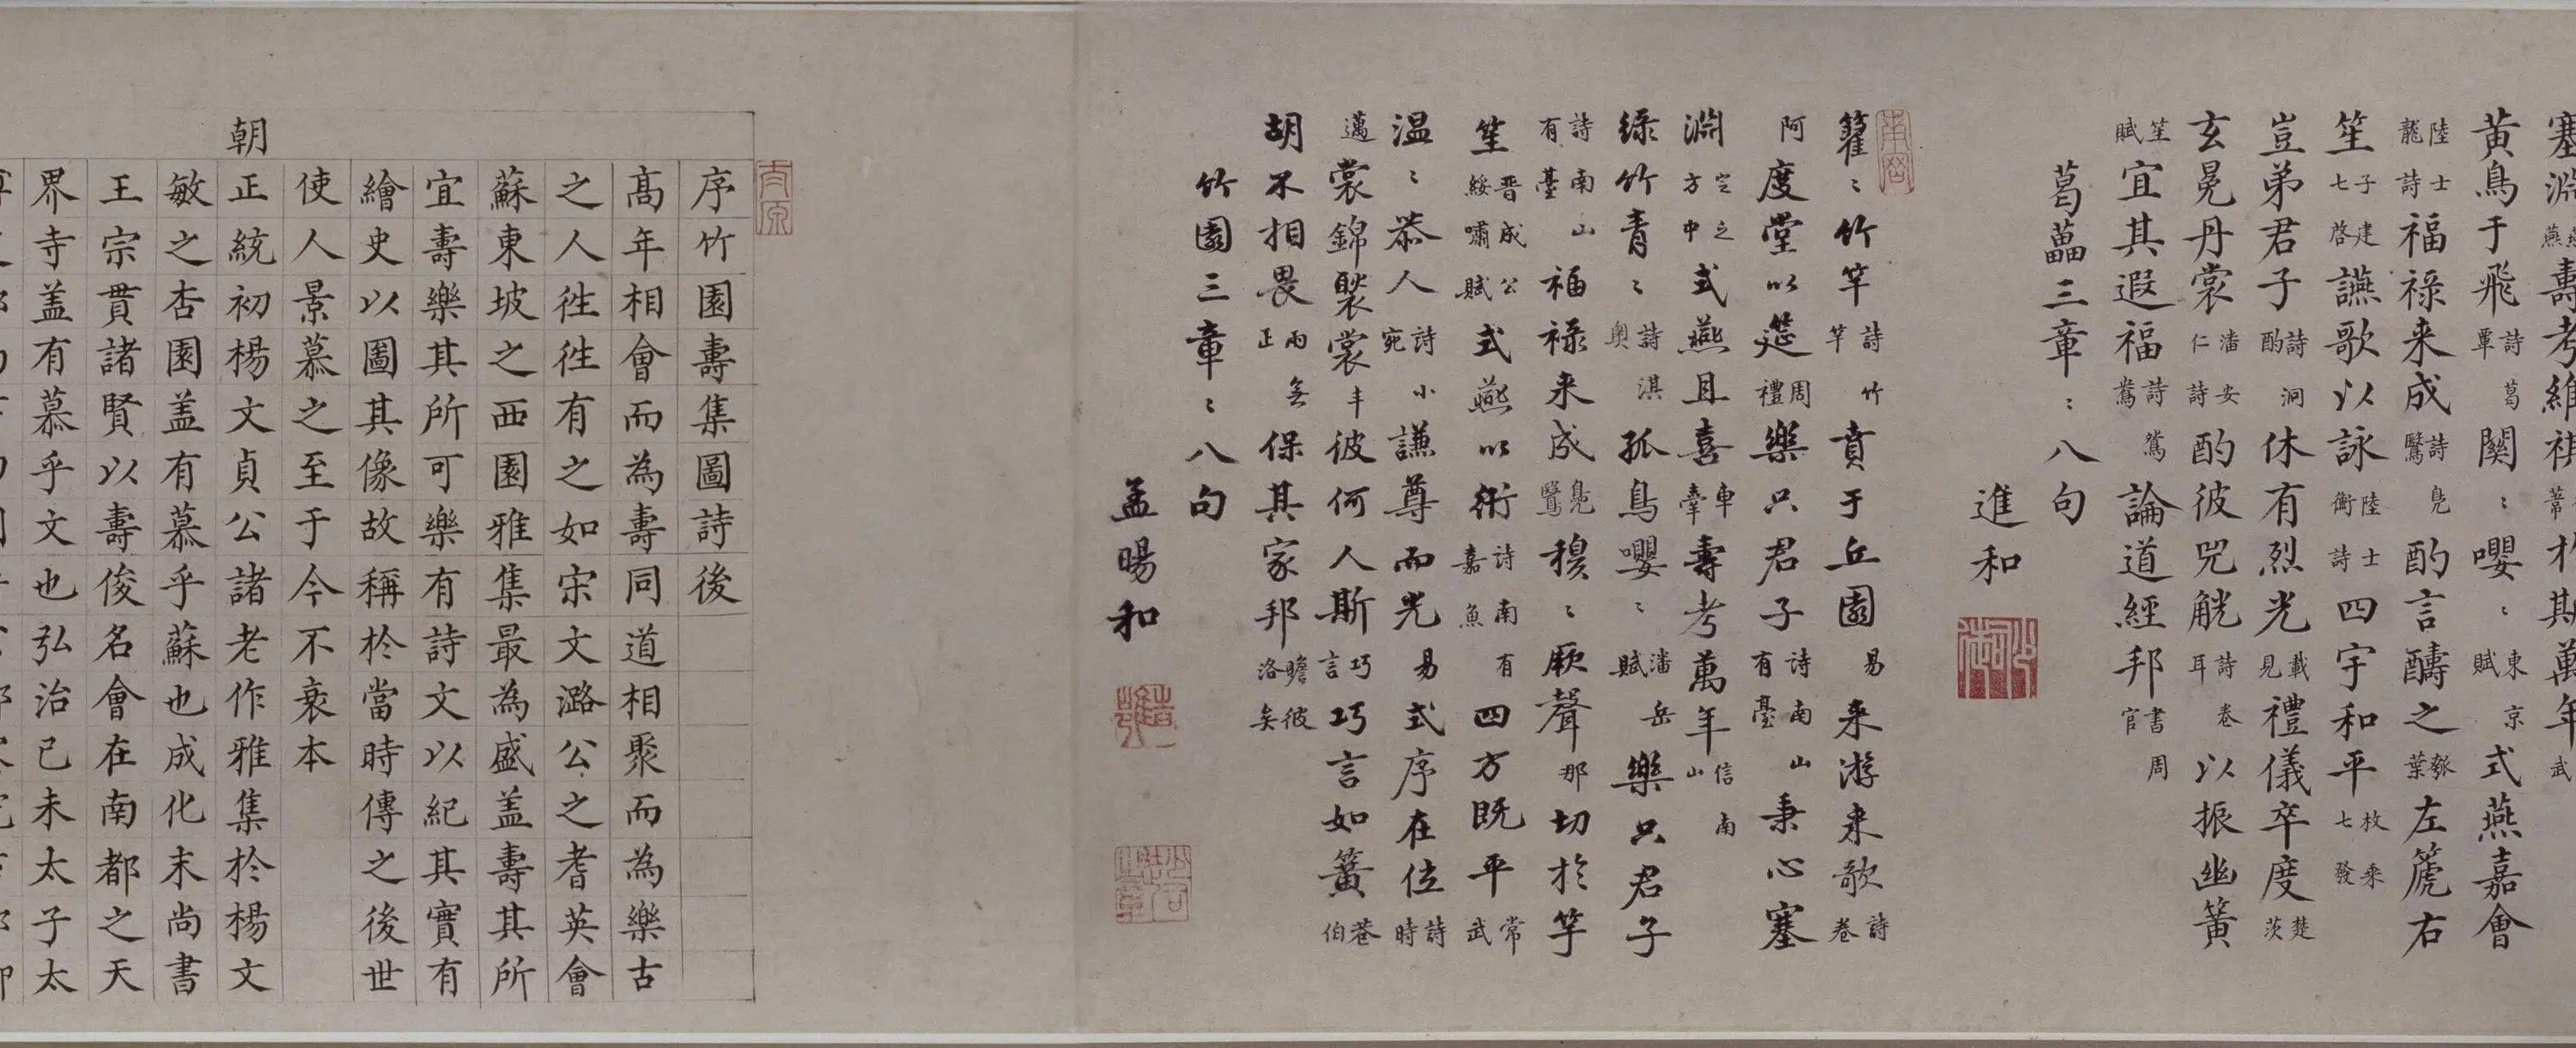 塞淵燕燕壽考維祺葦於斯萬年武
黃鳥于飛詩葛覃關〻嚶〻東京賦式燕嘉會
陸士龍詩福祿来成詩鳧鷖酌言醻之瓠葉左箎右
笙子建七啓讌歌以詠陸士衡詩四宇和平枚乘七發
豈弟君子詩泂酌休有烈光載見禮儀卒度楚茨
玄冕丹裳潘安仁詩酌彼兕觥詩卷耳以振幽簧
笙賦宜其遐福詩鴛鴦論道經邦書周官
葛藟三章〻八句
進和
籊〻竹竿詩竹竿賁于丘園易来游来歌詩卷
阿度堂以筵周禮樂只君子詩南山有臺秉心塞
淵定之方中式燕且喜車舝壽考萬年信南山
綠竹青〻詩淇奧孤鳥嚶〻潘岳賦樂只君子
詩南山有臺福祿来成鳧鷖穆〻厥聲那切於竽
笙晉成公綏嘯賦式燕以衎詩南有嘉魚四方既平常武
温〻恭人詩小宛謙尊而光易式序在位詩時
邁裳錦褧裳丰彼何人斯巧言巧言如簧巷伯
胡不相畏雨無正保其家邦瞻彼洛矣
竹園三章〻八句
孟暘和
序竹園壽集圖詩後
髙年相會而為壽同道相聚而為樂古
之人徃徃有之如宋文潞公之耆英會
蘇東坡之西園雅集最為盛盖壽其所
宜壽樂其所可樂有詩文以紀其實有
繪史以圖其像故稱於當時傳之後世
使人景慕之至于今不衰本
朝
正統初楊文貞公諸老作雅集於楊文
敏之杏園盖有慕乎蘇也成化末尚書
王宗貫諸賢以壽俊名會在南都之天
界寺盖有慕乎文也弘治己未太子太